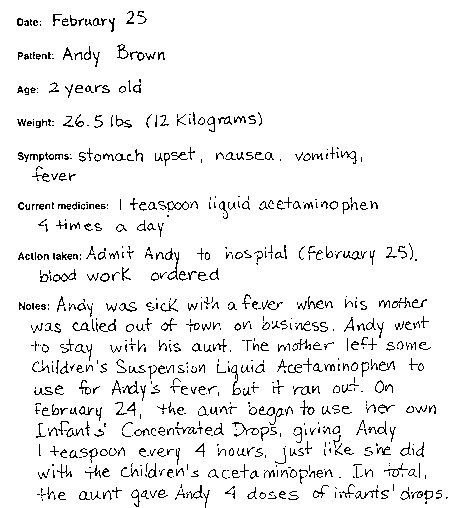 Date: February 25
Patient: Andy Brown
Age: 2 years old
Weight: 26.5 lbs (12 Kilograms)
Symptoms: stomach upset, nausea, vomiting,
fever
Current medicines: 1 teaspoon liquid acetaminophen
4 times a day
Action taken: Admit Andy to hospital (February 25),
blood work ordered
Notes: Andy was sick with a fever when his mother
was called out of town on business. Andy went
to stay with his aunt. The mother left some
Children's Suspension Liquid Acetaminophen to
use for Andy's fever, but it ran out. On
February 24, the aunt began to use her own
Infants' Concentrated Drops, giving Andy
1 teaspoon every 4 hours, just like she did
with the children's acetaminophen. In total,
the aunt gave Andy 4 doses of infants' drops.